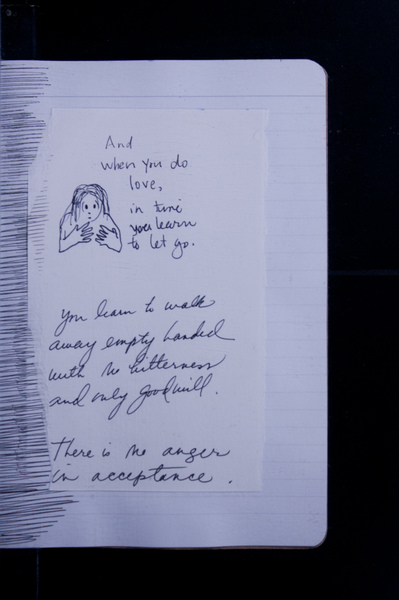 And
when you do
love,
in time
you learn
to let go.
You learn to walk
away empty handed
with no bitterness
and only goodwill.
There is no anger
in acceptance.